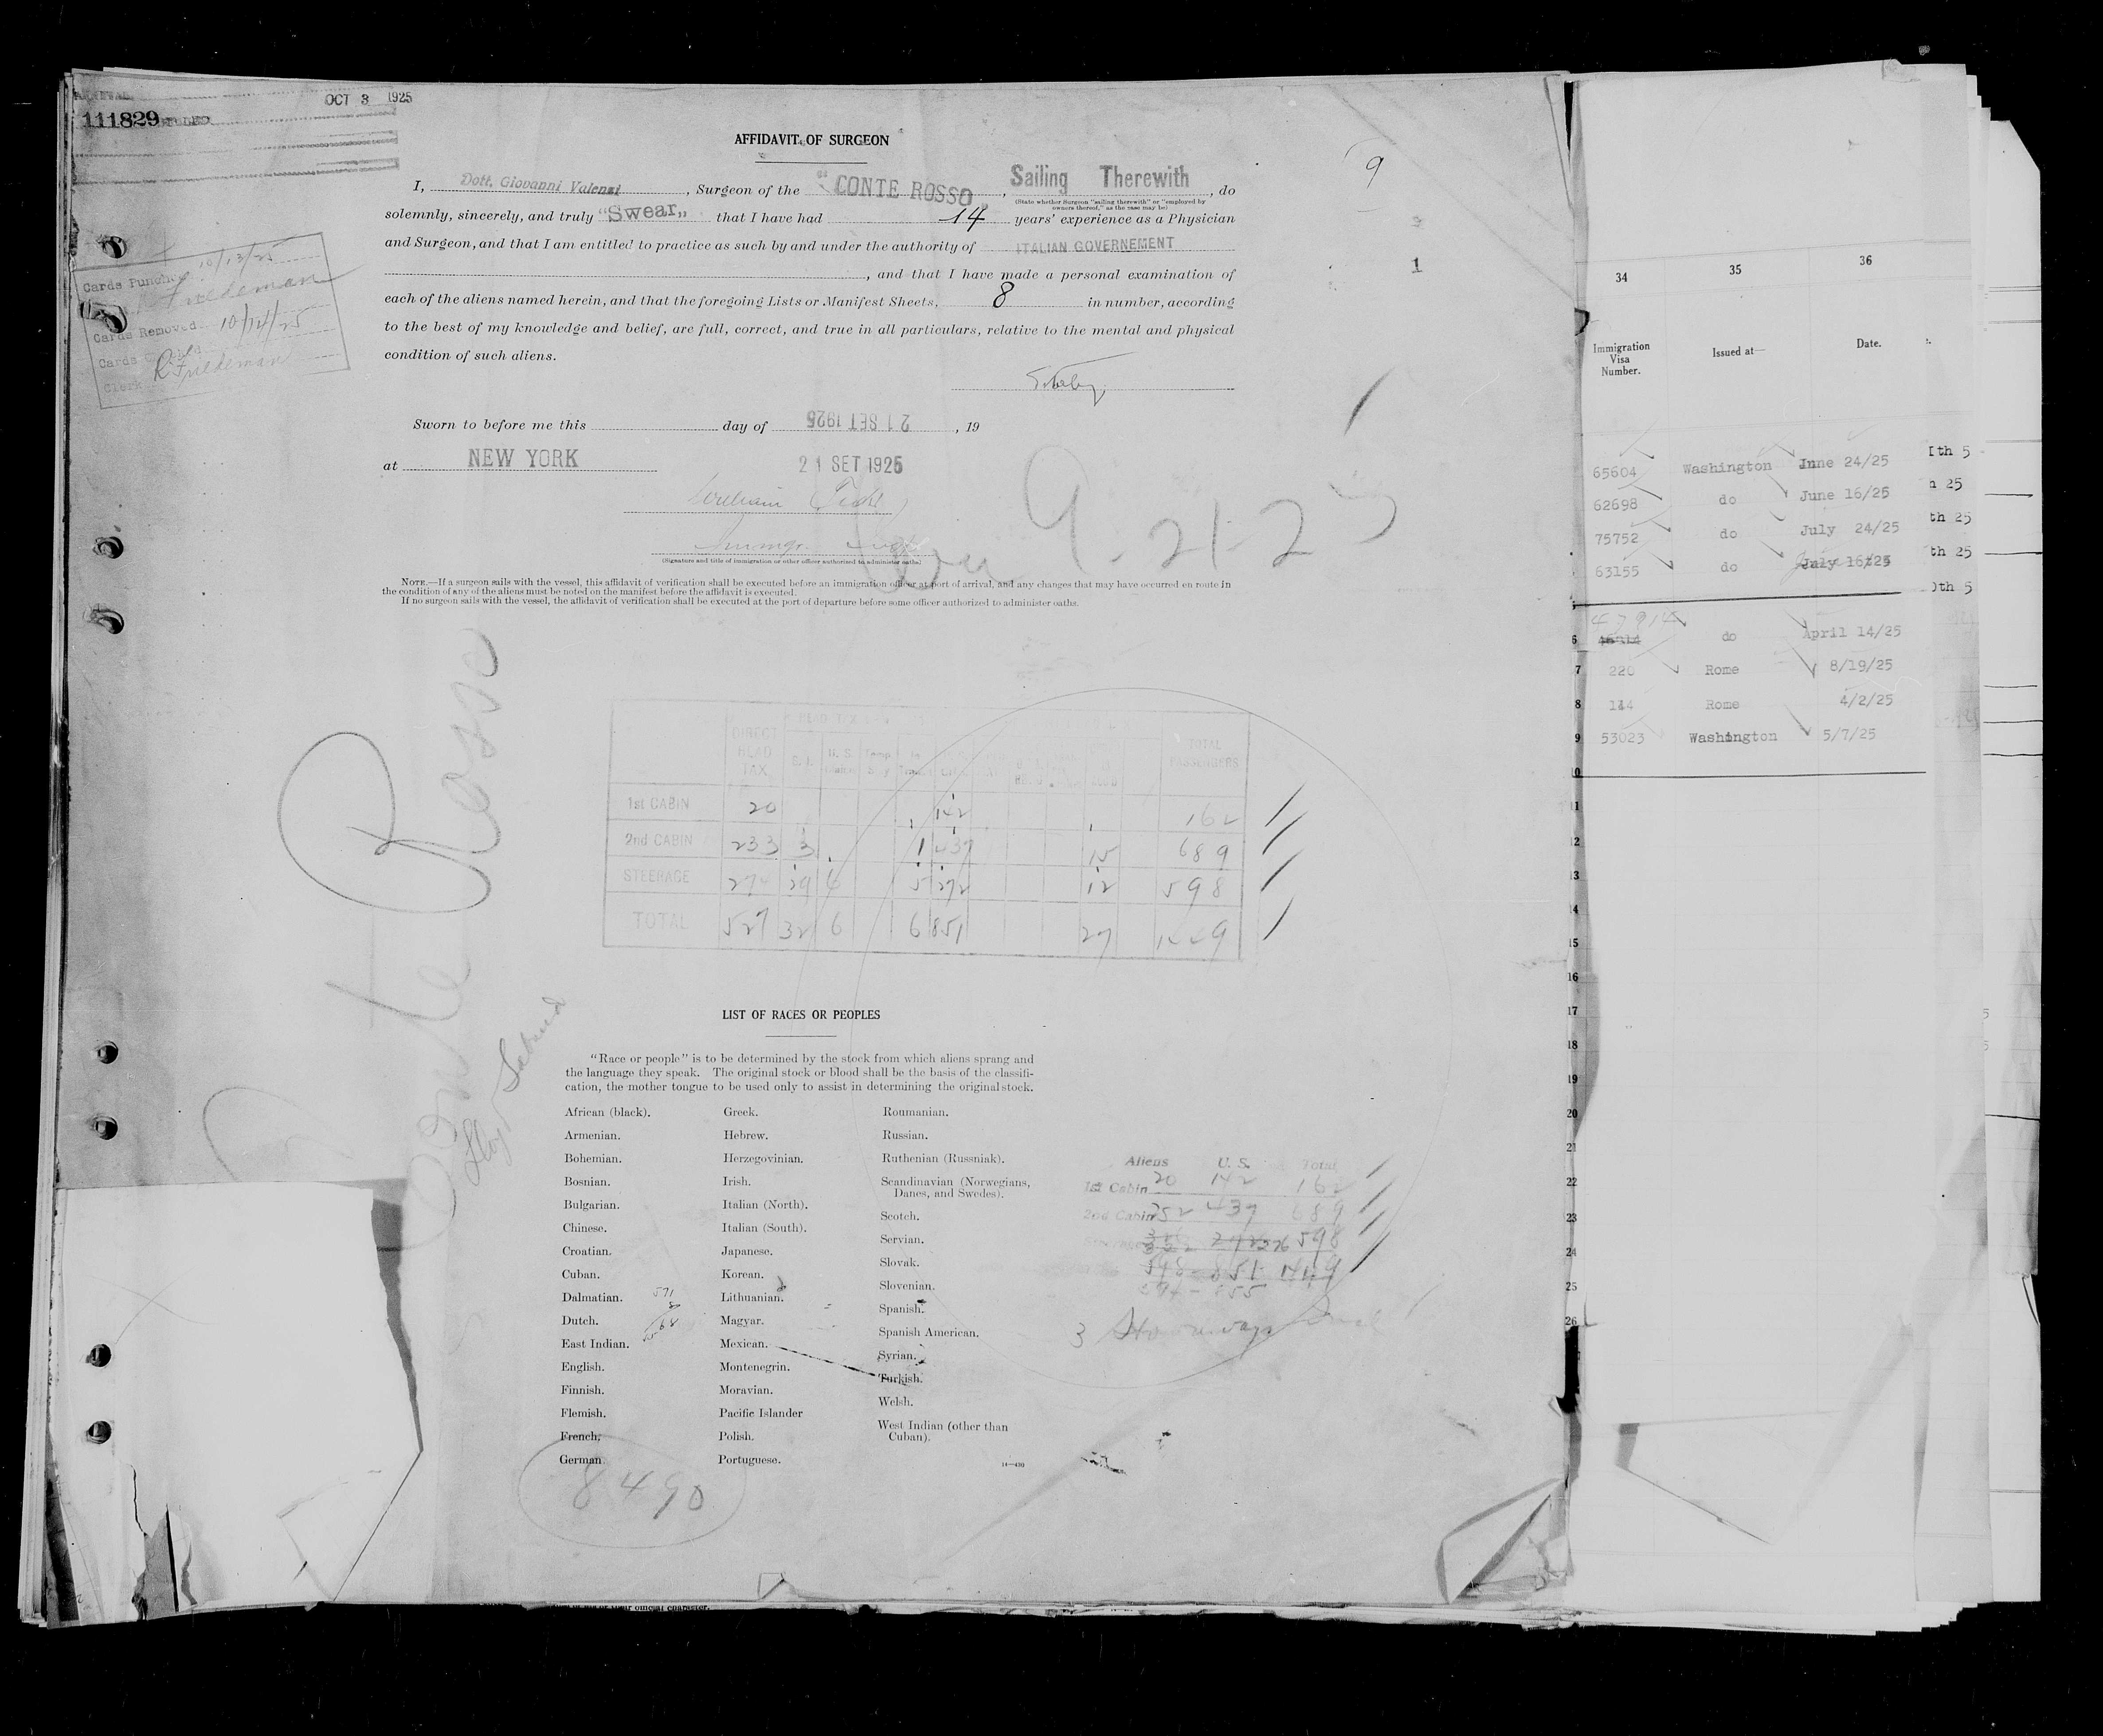 OCT 3 1925
111829
AFFIDAVIT OF SURGEON
9
I, Dott. Giovanni Valensi, Surgeon of the "CONTE ROSSO", Sailing Therewith, do
(State whether Surgeon "sailing therewith" or "employed by
owners thereof," as the case may be)
solemnly, sincerely, and truly "Swear" that I have had 14 years' experience as a Physician
and Surgeon, and that I am entitled to practice as such by and under the authority of ITALIAN GOVERNEMENT
, and that I have made a personal examination of
1
each of the aliens named herein, and that the foregoing Lists or Manifest Sheets, 8 in number, according
to the best of my knowledge and belief, are full, correct, and true in all particulars, relative to the mental and physical
condition of such aliens.
Cards Punched 10/13/25
Friedeman
Cards Removed 10/14/25
Cards
Clerk R Friedeman
Sworn to before me this day of 21 SET 1925, 19
at NEW YORK 21 SET 1925
William
Immgr.
(Signature and title of immigration or other officer authorized to administer oaths)
9-21-25
NOTE.—If a surgeon sails with the vessel, this affidavit of verification shall be executed before an immigration officer at port of arrival, and any changes that may have occurred en route in
the condition of any of the aliens must be noted on the manifest before the affidavit is executed.
If no surgeon sails with the vessel, the affidavit of verification shall be executed at the port of departure before some officer authorized to administer oaths.
Conte Rosso
DIRECT HEAD TAX
TOTAL PASSENGERS
1st CABIN 20 142 162
2nd CABIN 233 3 1 437 15 689
STEERAGE 274 29 6 5 272 12 598
TOTAL 527 32 6 6 851 27 1449
LIST OF RACES OR PEOPLES
"Race or people" is to be determined by the stock from which aliens sprang and
the language they speak. The original stock or blood shall be the basis of the classifi-
cation, the mother tongue to be used only to assist in determining the original stock.
African (black).
Armenian.
Bohemian.
Bosnian.
Bulgarian.
Chinese.
Croatian.
Cuban.
Dalmatian.
Dutch.
East Indian.
English.
Finnish.
Flemish.
French.
German.
Greek.
Hebrew.
Herzegovinian.
Irish.
Italian (North).
Italian (South).
Japanese.
Korean.
Lithuanian.
Magyar.
Mexican.
Montenegrin.
Moravian.
Pacific Islander
Polish.
Portuguese.
Roumanian.
Russian.
Ruthenian (Russniak).
Scandinavian (Norwegians,
Danes, and Swedes).
Scotch.
Servian.
Slovak.
Slovenian.
Spanish.
Spanish American.
Syrian.
Turkish.
Welsh.
West Indian (other than
Cuban).
14—430
571
8490
Aliens U. S. Total
1st Cabin 20 142 162
2nd Cabin 252 437 689
598
851 1449
3
34 35 36
Immigration
Visa
Number.
Issued at—
Date.
65604 Washington June 24/25
62698 do June 16/25
75752 do July 24/25
63155 do July 16/25
6 47914 do April 14/25
7 220 Rome 8/19/25
8 144 Rome 4/2/25
9 53023 Washington 5/7/25
10
11
12
13
14
15
16
17
18
19
20
21
22
23
24
25
26
th 5
25
th 25
th 25
th 5